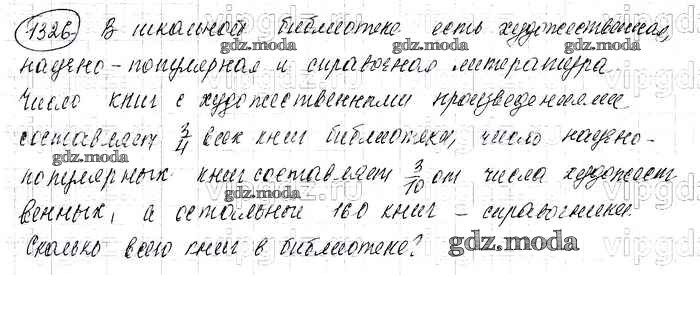 1326. В школьной библиотеке есть художественная,
gdz.moda gdz.moda gdz.moda
научно-популярная и справочная литература
Число книг с художественными произведениями
составляет 3/4 всех книг библиотеки, число научно-
gdz.moda gdz.moda
популярных книг составляет 3/10 от числа художест
gdz.moda
венных, а остальные 160 книг - справочники.
Сколько всего книг в библиотеке?
gdz.moda